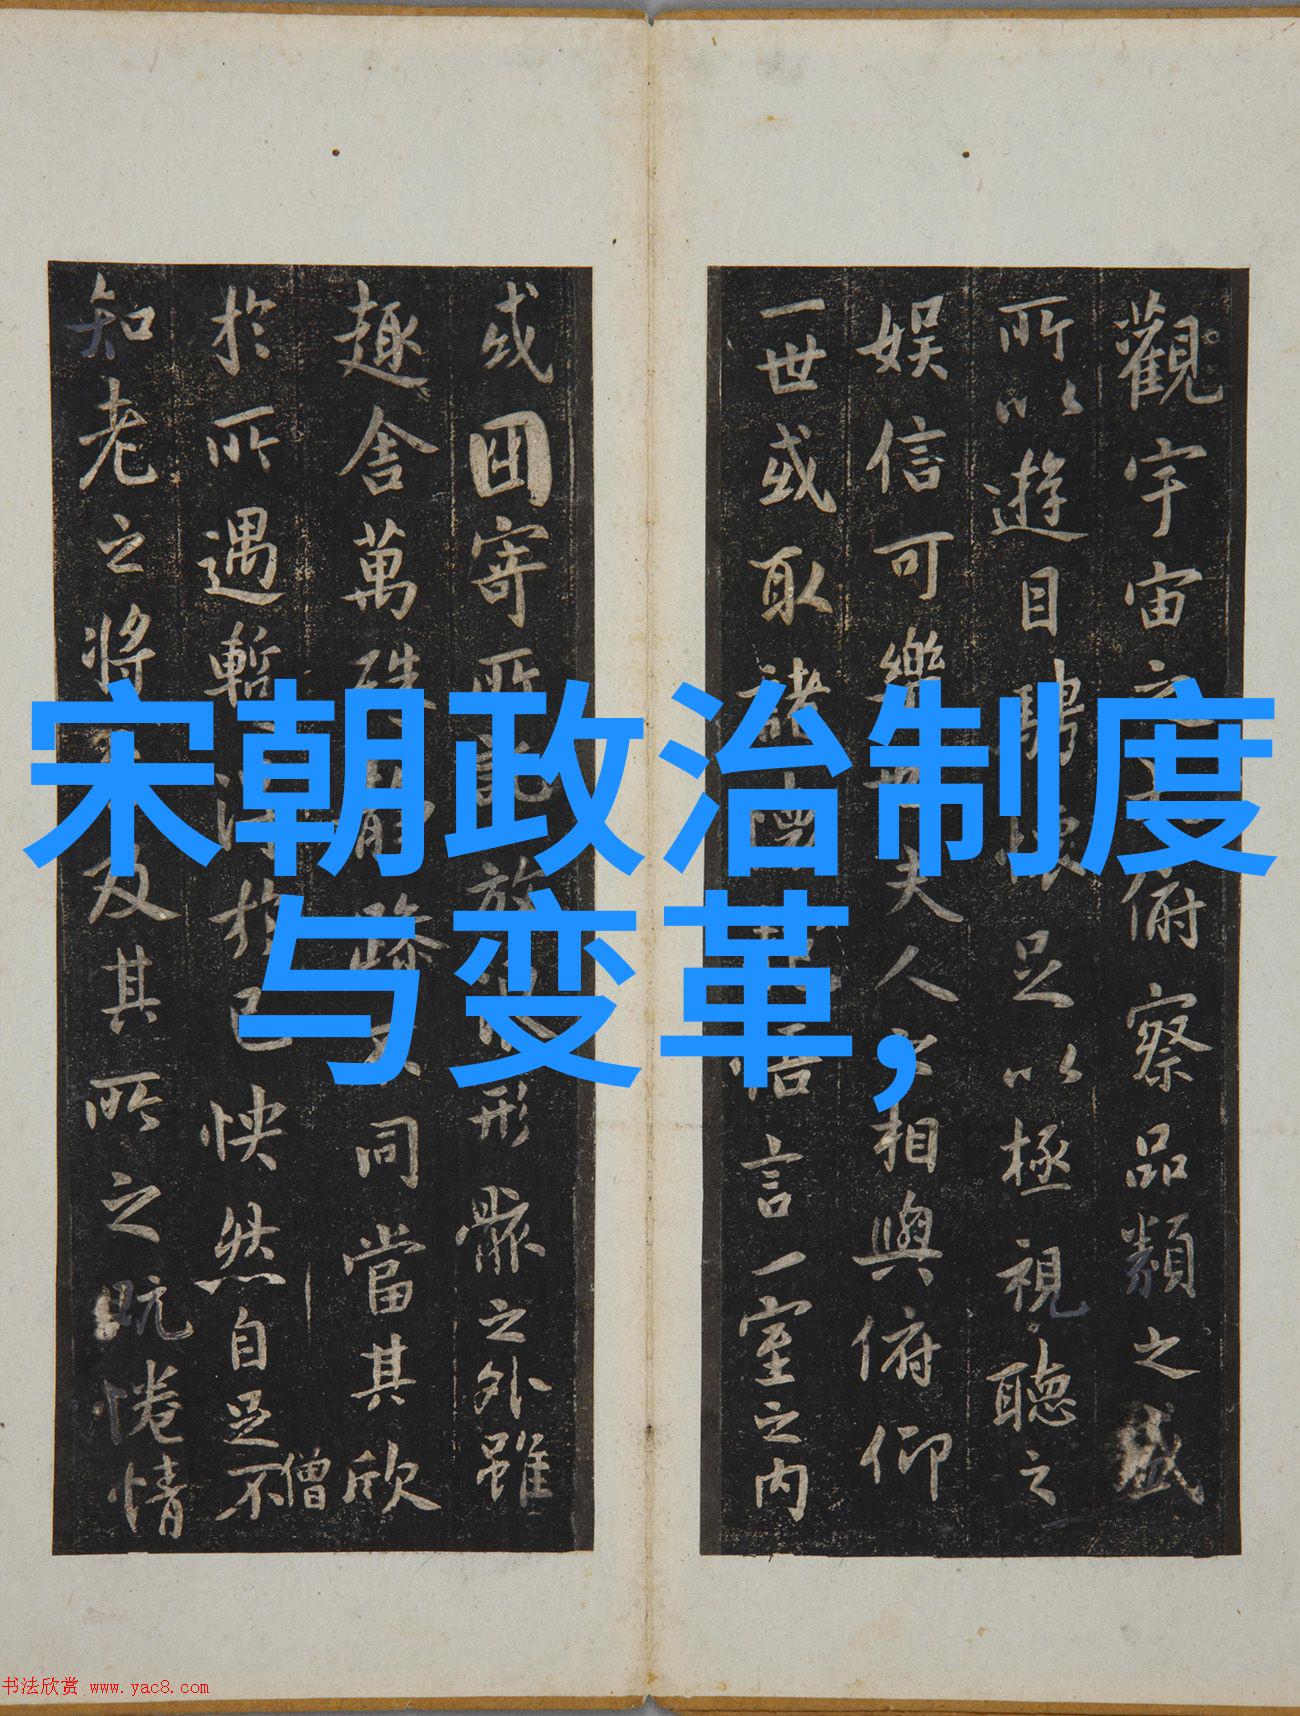 宋朝政治制度
与变革,
觀宇宙之俯察品類之盛
所以遊目騁懷足以極視聽之
娱信可樂也夫人之相與俯仰
一世或取諸懷悟言一室之内
或因寄所託放浪形骸之外雖
趣舍萬殊靜躁不同當其欣
於所遇暫得於己怏然自足不
僧
知老之將及其所之既惓情
书法欣赏 www.yac8.com